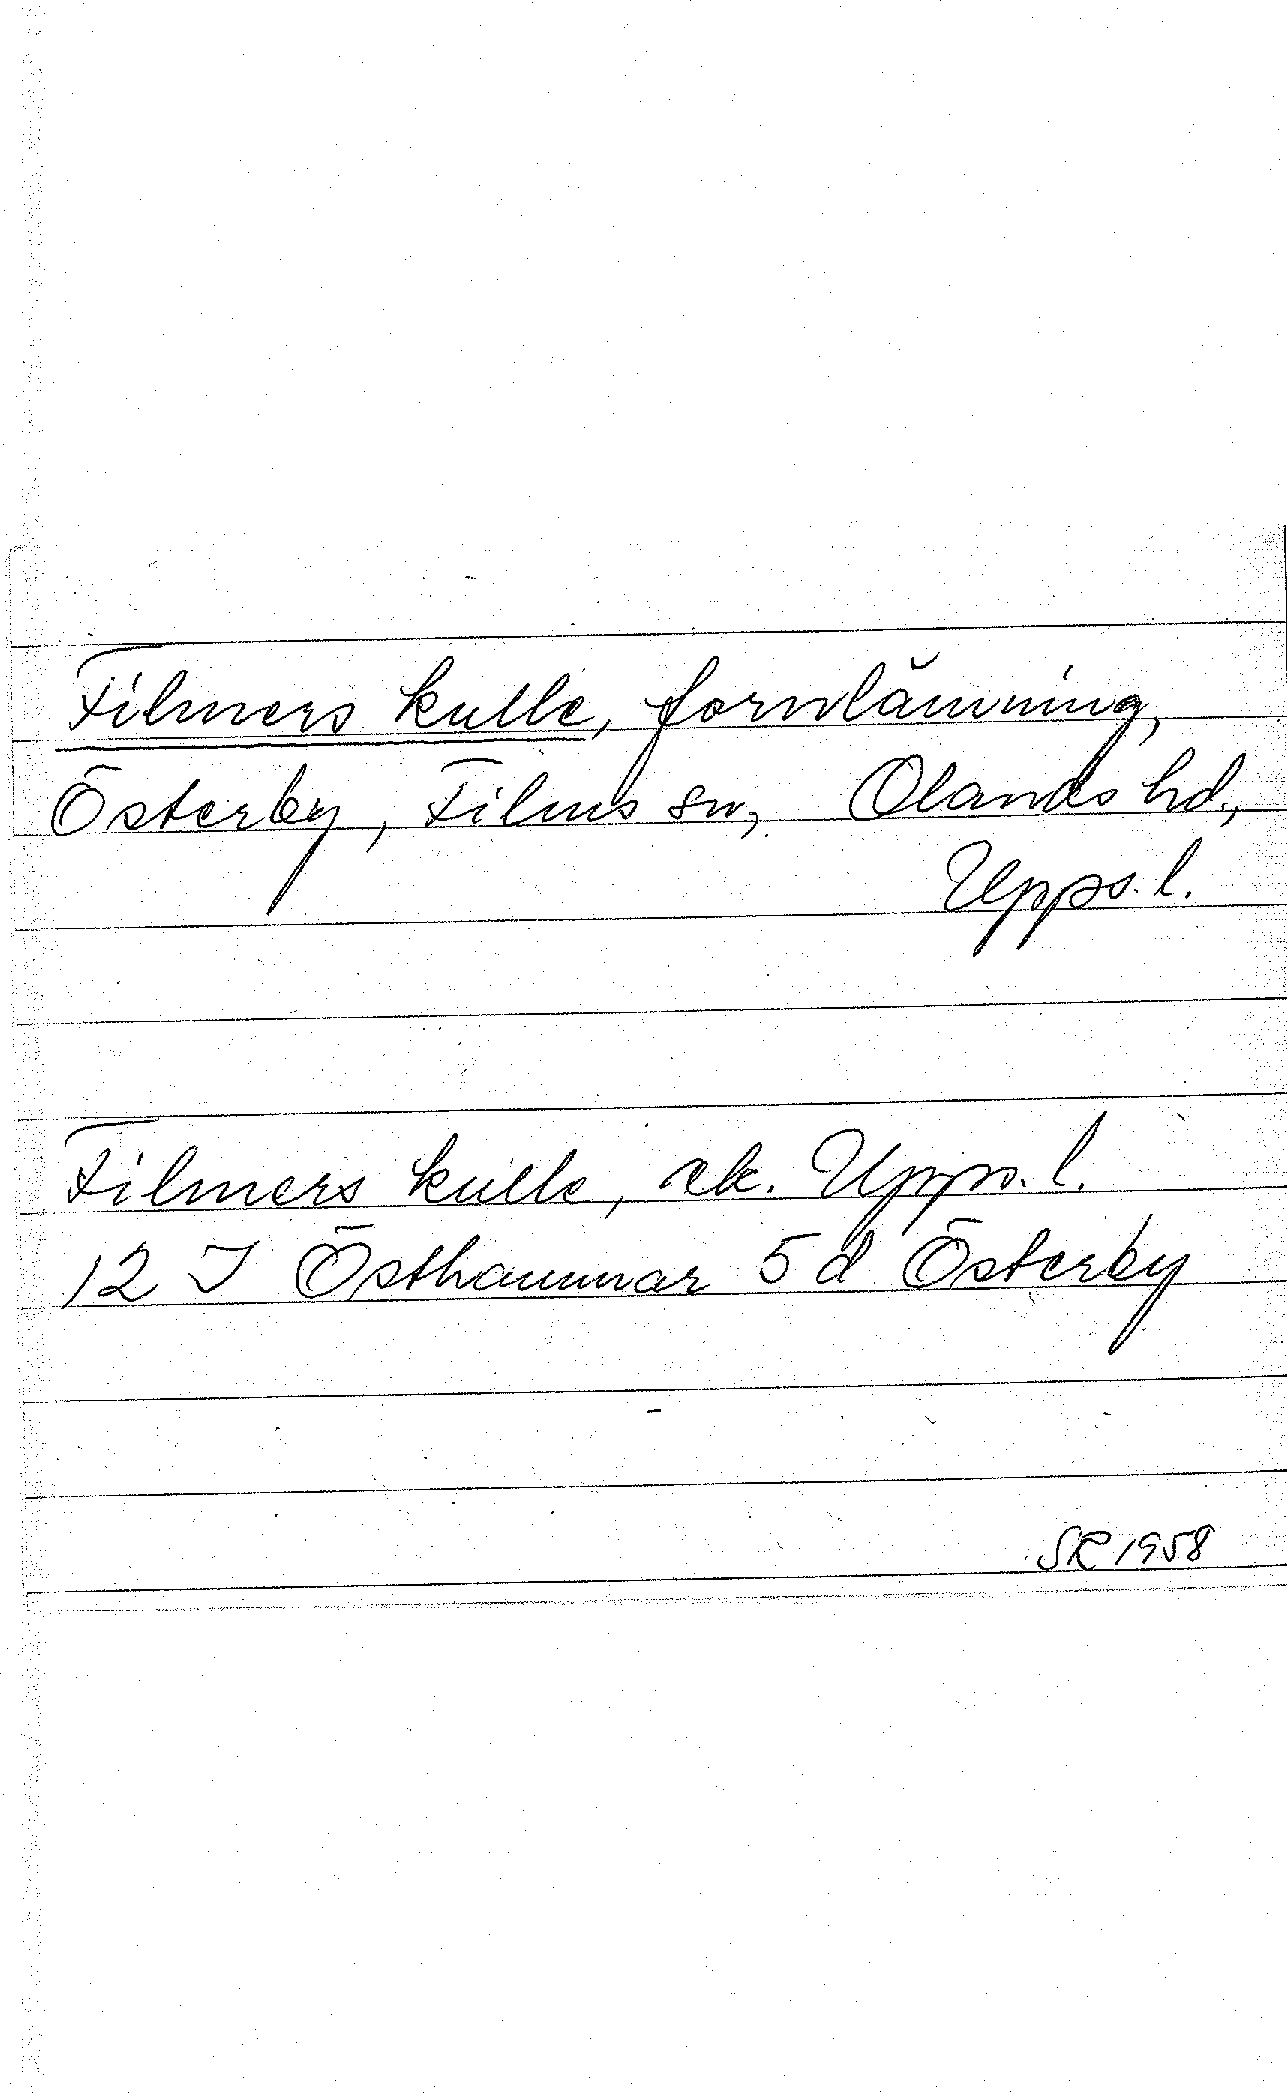 Filmers kulle, fornlämning,
Österby, Films sn, Olands hd.,
Upps. l.
Filmers kulle, ek. Upps. l.
12 I Östhammar 5 d Österby
SR 1958